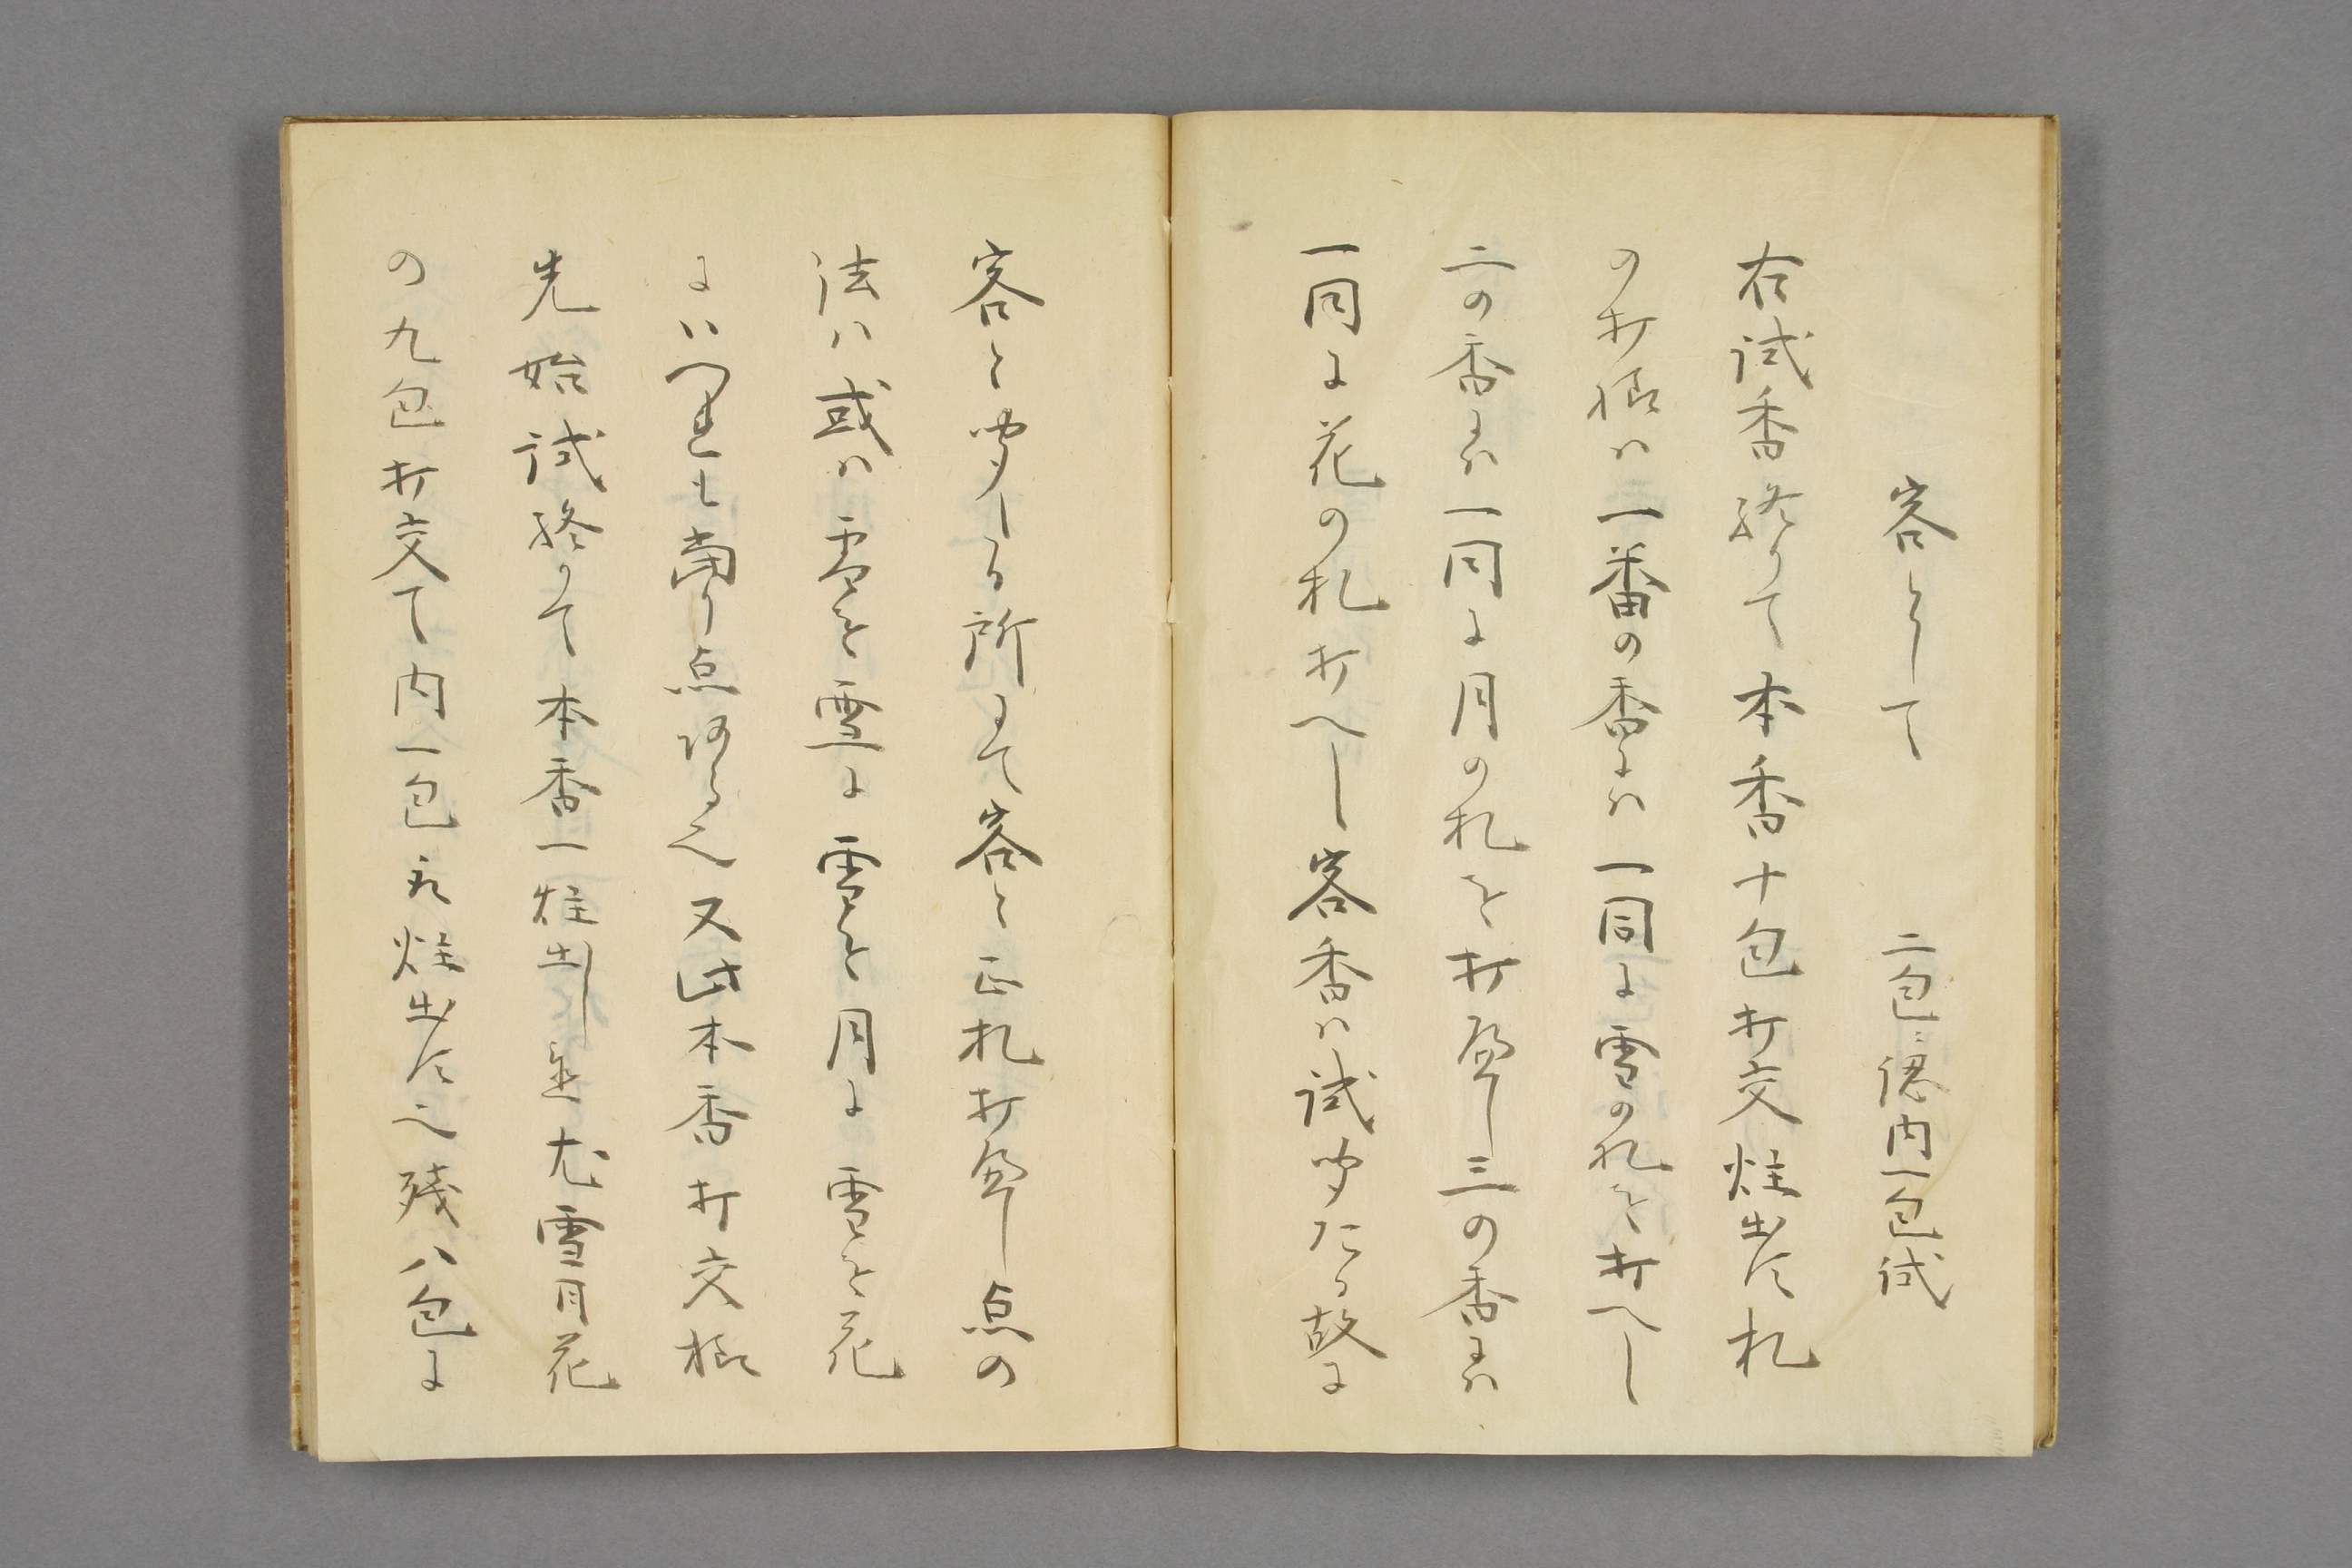 客として 二包ニ認内一包試
右試香終りて本香十包打交炷出す札
の打様ハ一番の香にハ一同に雪の札を打へし
二の香にハ一同に月の札を打へし三の香にハ
一同に花の札打へし客香ハ試聞たる故に
客と聞し所にて客と正札打へし点の
法ハ或ハ雪を雪に雪を月に雪を花
にいへとも当り点なる也又此本香打交様
先始試終りて本香一炷出し是尤雪月花
の九包打交て内一包を炷出す也残八包に